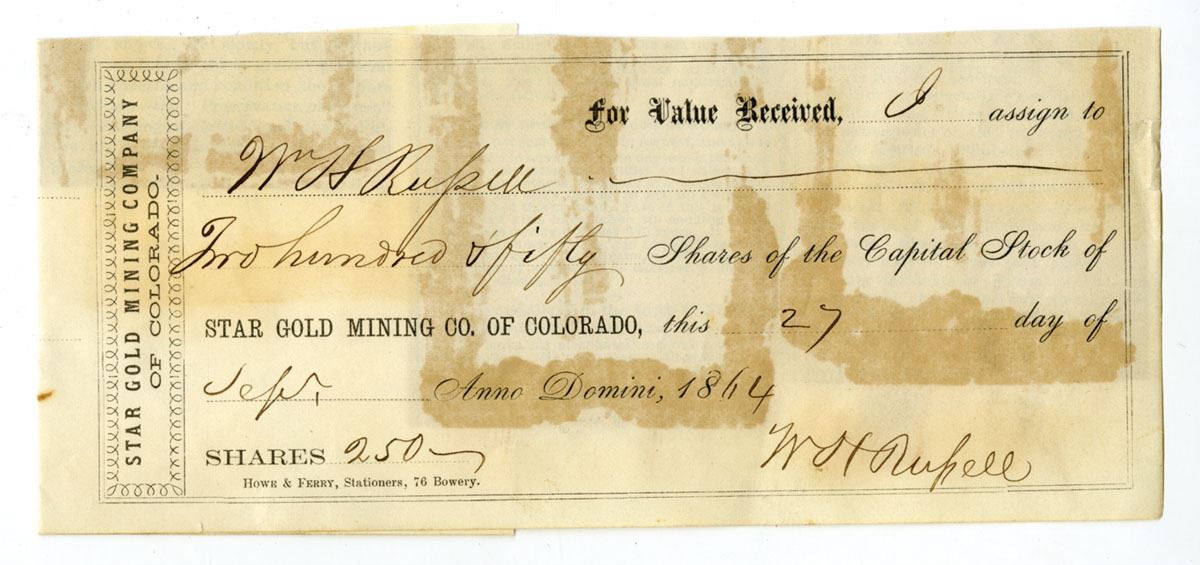 STAR GOLD MINING COMPANY
OF COLORADO.
For Value Received, I assign to
Wm H Russell
Two hundred & fifty Shares of the Capital Stock of
STAR GOLD MINING CO. OF COLORADO, this 27 day of
Sept, Anno Domini, 1864
SHARES 250
W H Russell
HOWE & FERRY, Stationers, 76 Bowery.